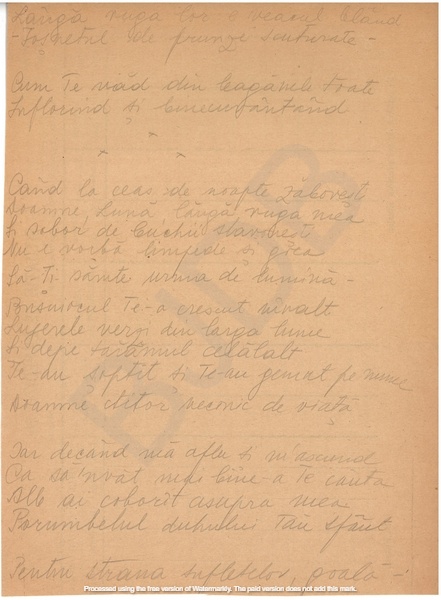 Lângă ruga lor e veacul blând
- Foșnetul de frunze scuturate -
Cum Te văd din leagănile toate
Înflorind și binecuvântând
Când la ceas de noapte zăbovești
Doamne, bună, lângă ruga mea
Și sobor de buchii slavonești
Nu e vorbă limpede și grea
Să-Ți sărute urma de lumină -
Te-a crescut
vergi din larga lume
Și celălalt
Te-au șoptit și Te-au gemut pe nume
Doamne ctitor vecinic de viață
Iar decând mă aflu și m'ascund
Ca să'nvăț mai bine-a Te căuta
Alb ai coborît asupra mea
Porumbelul duhului Tău sfânt
Pentru strana sufletelor, goală -
Processed using the free version of Watermarkly. The paid version does not add this mark.